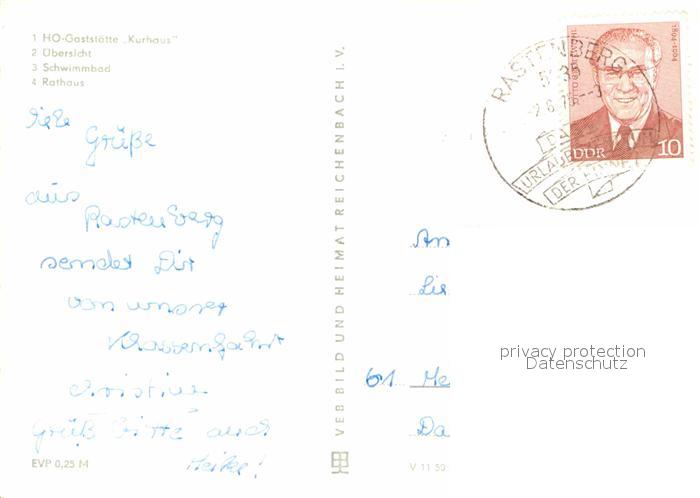 1 HO-Gaststätte „Kurhaus“
2 Übersicht
3 Schwimmbad
4 Rathaus
Grüße
aus
Rastenberg
sendet Dir
von unserer
Klassenfahrt
Christine
Grüß bitte auch
Heike!
EVP 0,25 M
VEB BILD UND HEIMAT REICHENBACH I. V.
V 11 50
RASTENBERG
DDR
10
1894-1964
An
Lie
Me
Da
privacy protection
Datenschutz